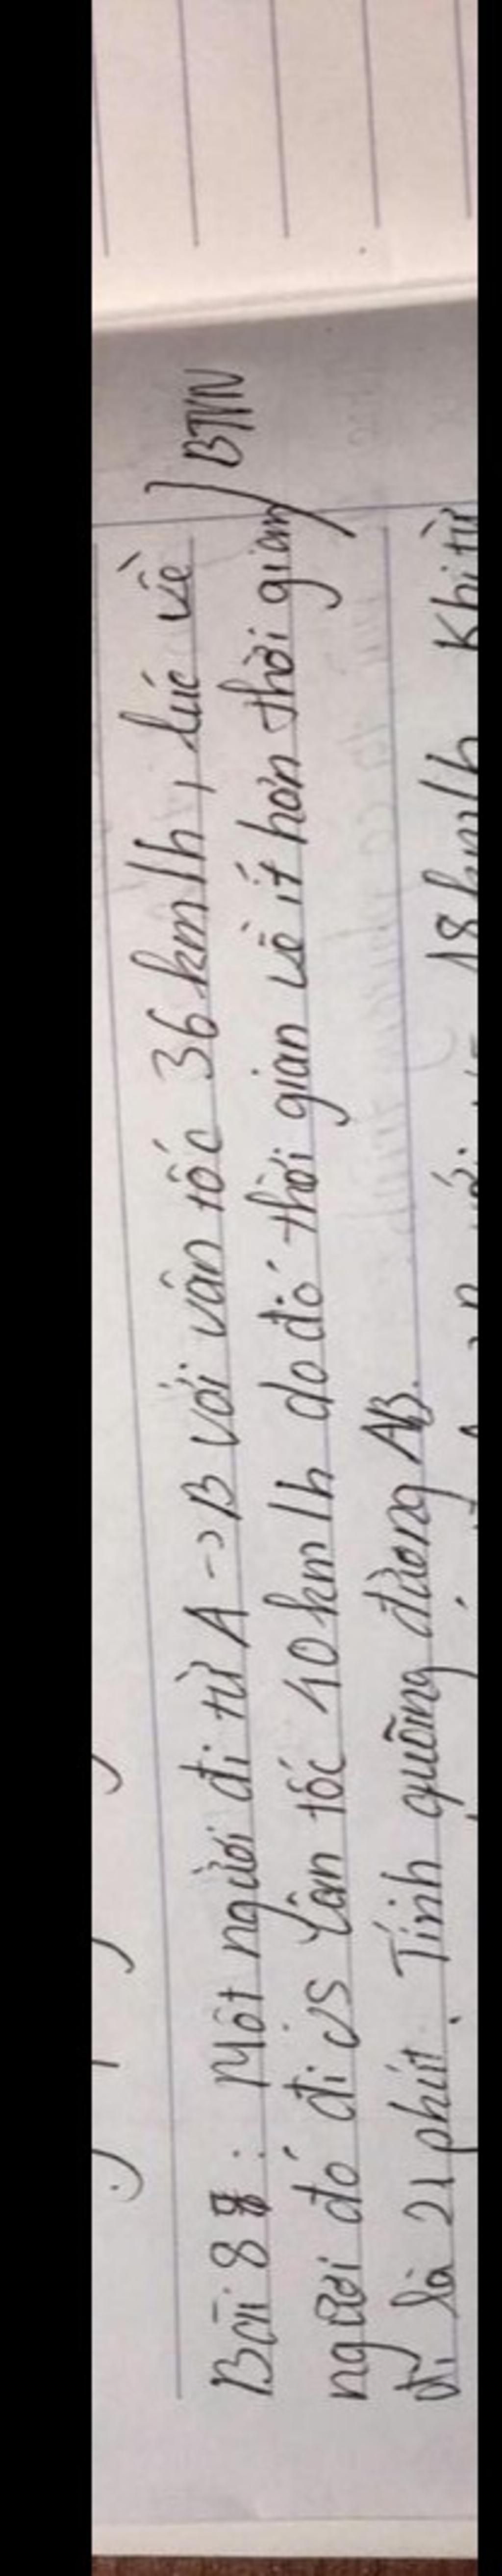 Bài 8: Một người đi từ A → B với vân tốc 36 km/h, lúc về
người đó đi vs vân tốc 40 km/h do đó thời gian về ít hơn thời gian
đi là 21 phút. Tính quãng đường AB.
BTVN
18 km/h Khi từ